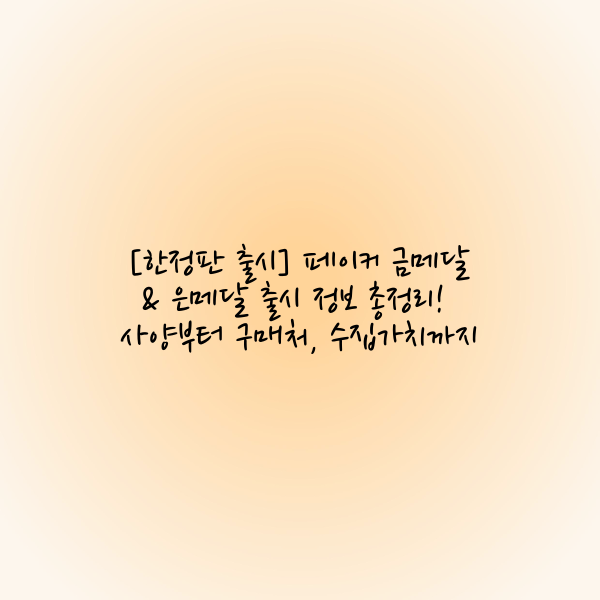 [한정판 출시] 페이커 금메달
& 은메달 출시 정보 총정리!
사양부터 구매처, 수집가치까지